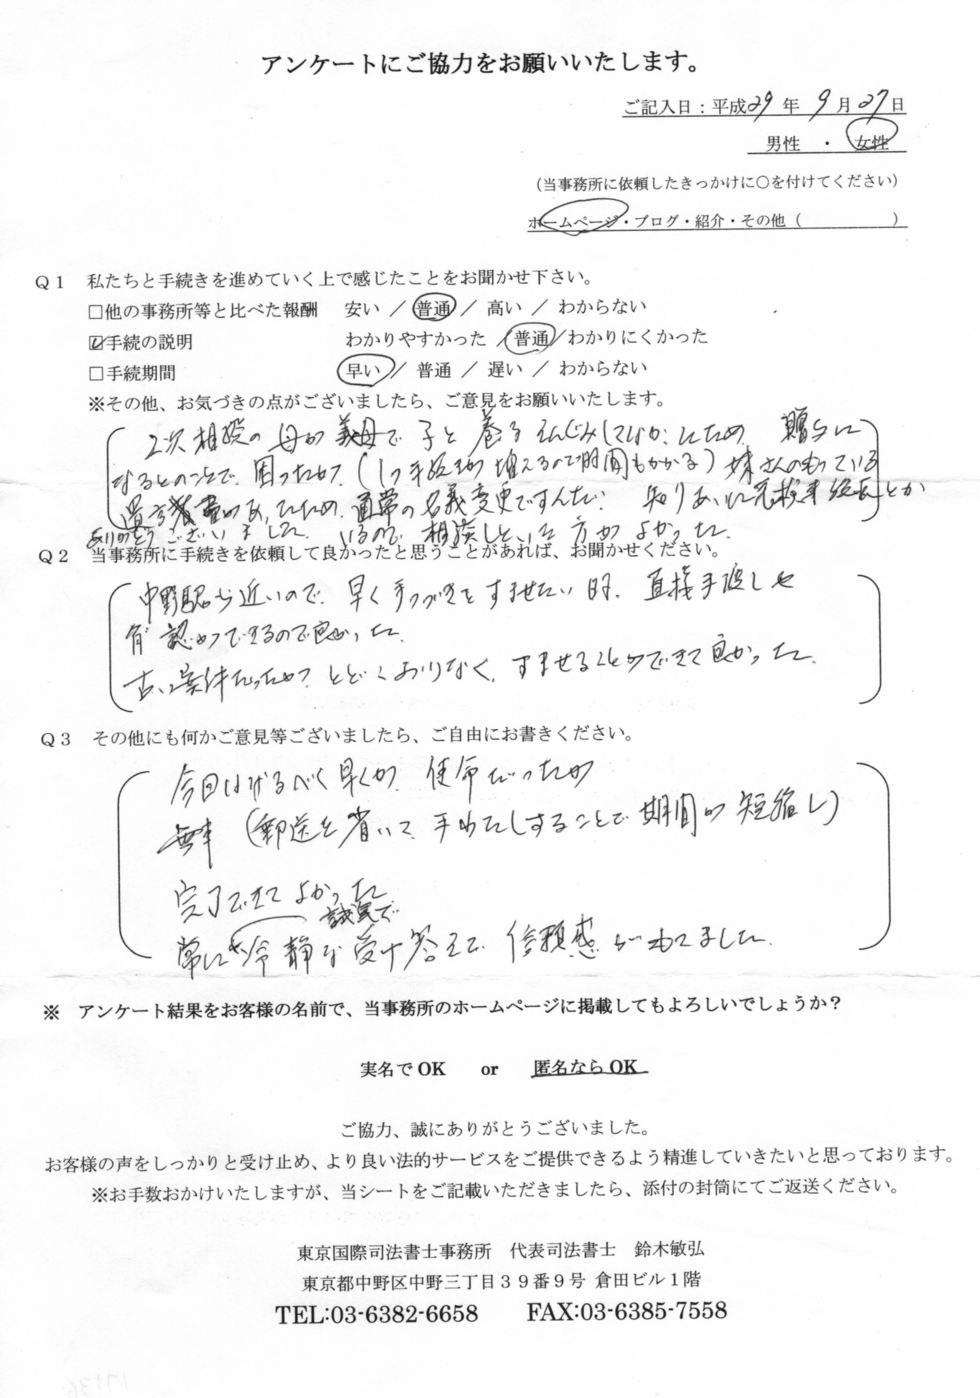 アンケートにご協力をお願いいたします。
ご記入日：平成29年 9月27日
男性 ・ 女性
（当事務所に依頼したきっかけに○を付けてください）
ホームページ・ブログ・紹介・その他（　　　　　）
Q１ 私たちと手続きを進めていく上で感じたことをお聞かせ下さい。
□他の事務所等と比べた報酬 安い ／ 普通 ／ 高い ／ わからない
☑手続の説明 わかりやすかった ／ 普通 ／ わかりにくかった
□手続期間 早い ／ 普通 ／ 遅い ／ わからない
※その他、お気づきの点がございましたら、ご意見をお願いいたします。
2次相談の 母が 義母で 子と 養子えんぐみしてなかったため 贈与に
なるとのことで、困ったが、(1つ手続きが増えるので時間もかかる) 妹さんのもっている
遺言 があったため、通常の名義変更ですんだ。 知りあいに とか
いるので 相談しといた方がよかった。
ありがとうございました
Q２ 当事務所に手続きを依頼して良かったと思うことがあれば、お聞かせください。
中野駅から近いので、早く手つづきをすませたい時、直接手渡しや
確認ができるので良かった。
古い案件だったが、とどこおりなく、すませることができて良かった。
Q３ その他にも何かご意見等ございましたら、ご自由にお書きください。
今回はなるべく早くが、使命だったが
無事 (郵送を省いて、手わたしすることで期間の短縮し)
完了できてよかった
常に冷静な受け答えで、誠実で 信頼感がもてました。
※ アンケート結果をお客様の名前で、当事務所のホームページに掲載してもよろしいでしょうか？
実名でOK or 匿名ならOK
ご協力、誠にありがとうございました。
お客様の声をしっかりと受け止め、より良い法的サービスをご提供できるよう精進していきたいと思っております。
※お手数おかけいたしますが、当シートをご記載いただきましたら、添付の封筒にてご返送ください。
東京国際司法書士事務所 代表司法書士 鈴木敏弘
東京都中野区中野三丁目３９番９号 倉田ビル１階
TEL:03-6382-6658 FAX:03-6385-7558